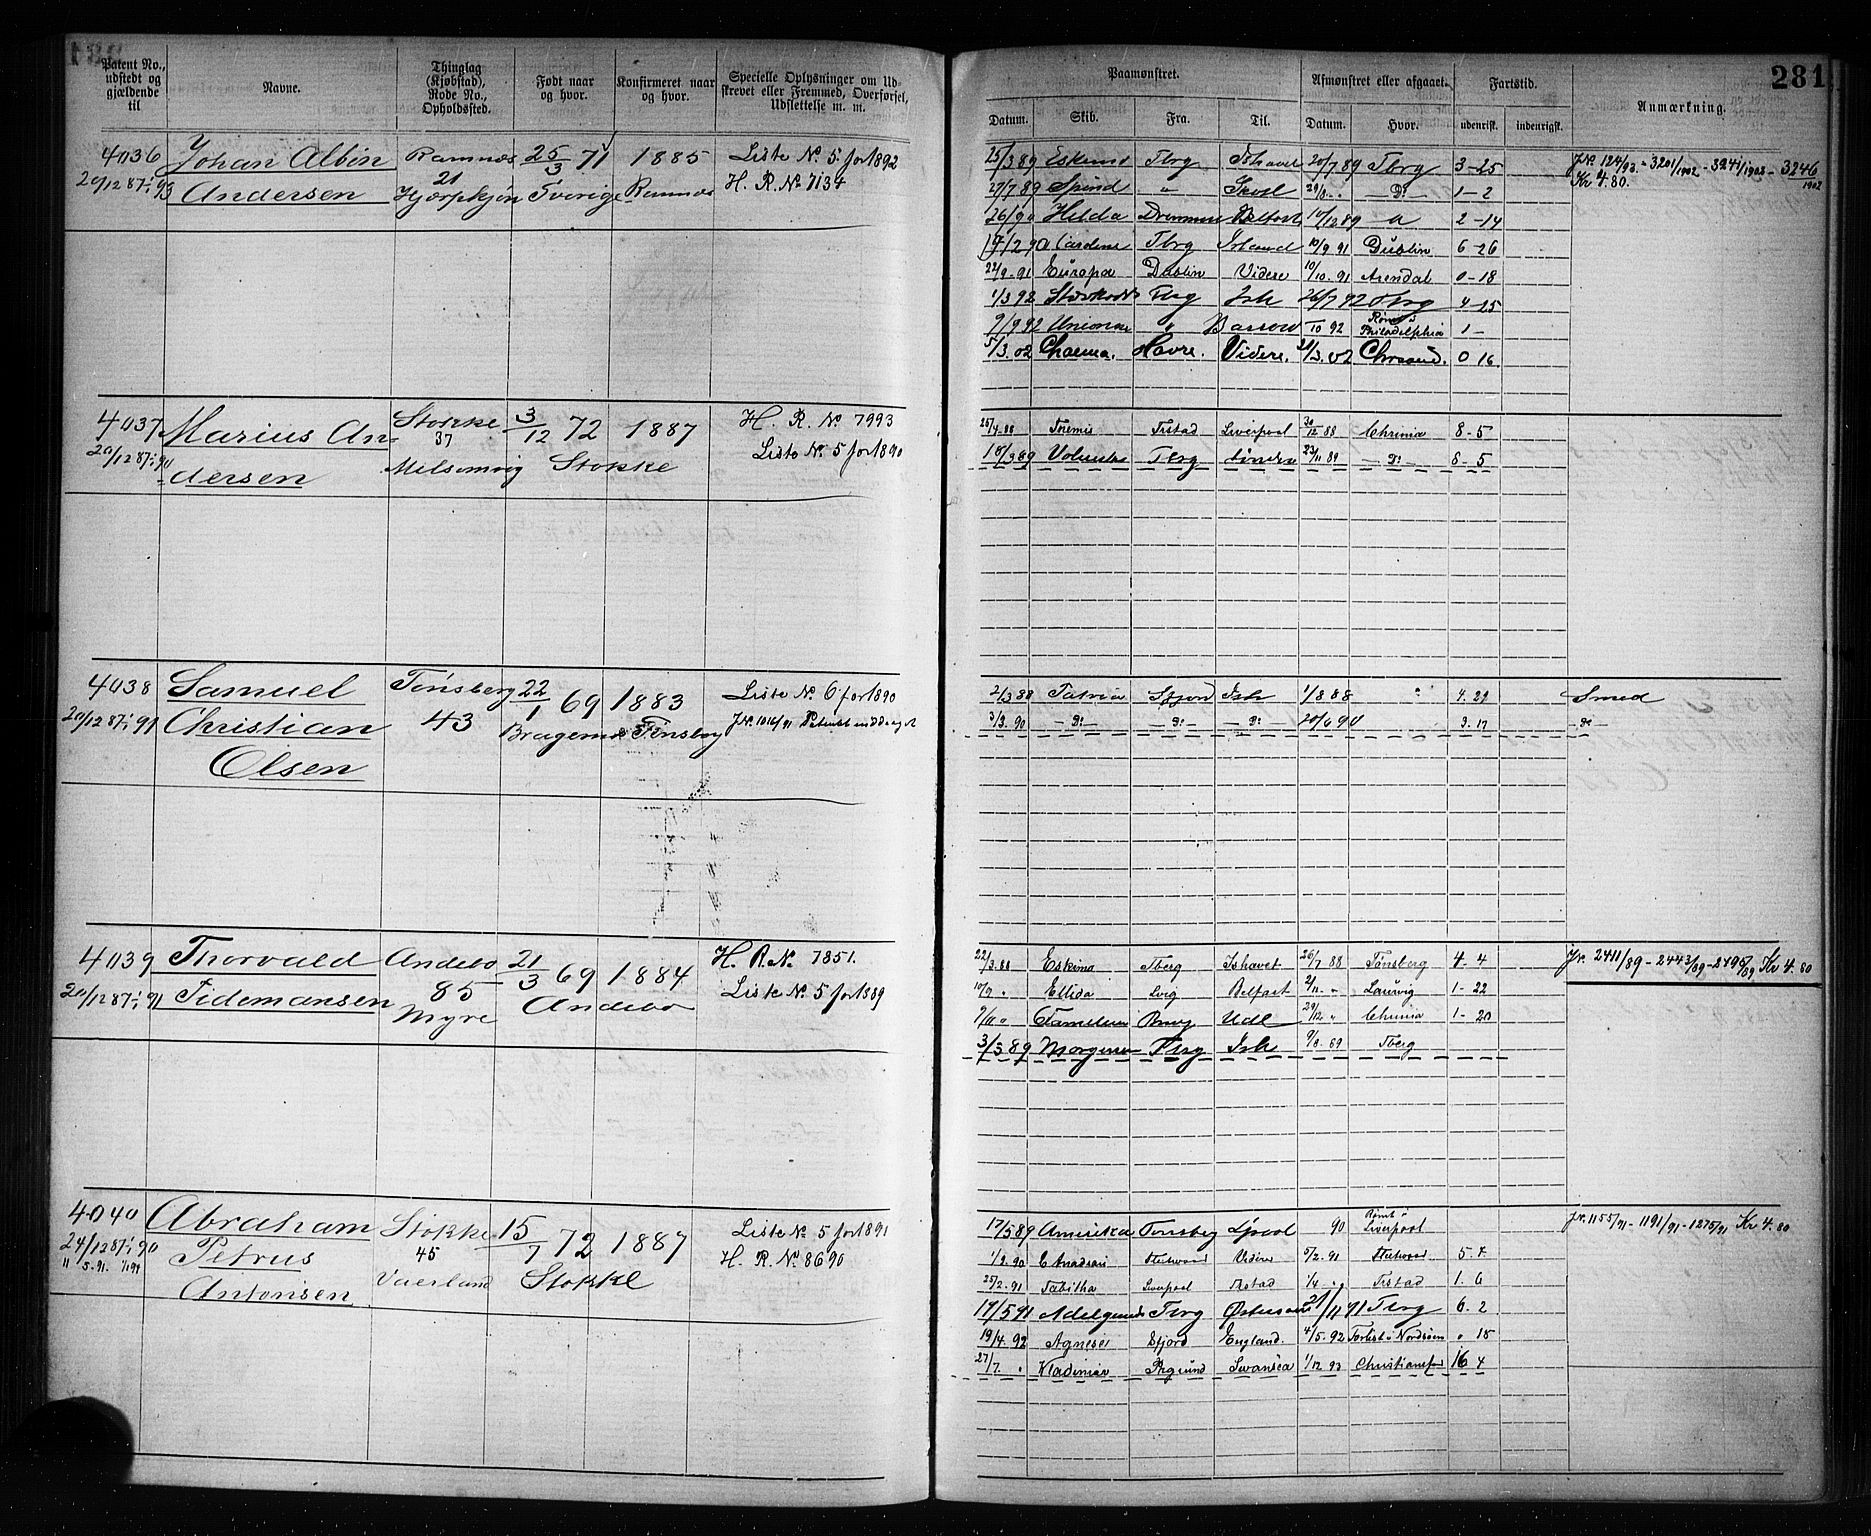 281.
Patent No., udstedt og gjældende til
Navne.
Thinglag (Kjøbstad), Rode No., Opholdssted.
Født naar og hvor.
Konfirmeret naar og hvor.
Specielle Oplysninger om Udskrevet eller Fremmed, Overførsel, Udslettelse m. m.
Paamønstret.
Afmønstret eller afgaaet.
Fartstid.
Anmærkning.
Datum. Skib. Fra. Til. Datum. Hvor. udenrigsk. indenrigsk.
4036 Johan Albin Ramnæs 25/3 71 1885 Liste No 5 for 1892
20/12 87 93 Andersen 21 Sverige Ramnæs H. R. No 7134
25/3 89 Tbrg Ishavet 20/7 89 Tbrg 3-25 J.No 124/93 - 3201/1902 - 3241/1902 - 3246/1902
Kr 4.80.
27/7 89 Spind " 1-2
Hilda Belfast 10/12 89 2-14
Tbrg Irland 10/9 91 Dublin 6-26
22/9-91 Europa Dublin Videre 10/10. 91 Arendal 0-18
1/3 92 Tbrg Ish 26/7 92 Tbrg 4-25
9/9 92 " Barrow 10 92 Rømt i Philadelphia 1-
5/3. 02 Havre. Videre. 21/3. 02 0 16
4037 Marius An- Stokke 3/12 72 1887 H. R. No 7993
20/12 87 90 dersen 37 Stokke Liste No 5 for 1890
Melsomvig
25/4-88 Liverpool 30/12 88 Chrinia 8-5
Tbrg 23/11 89 Do 8-5
4038 Samuel Tønsberg 22/1 69 1883 Liste No 6 for 1890
20/12 87 91 Christian 43 Bragernæs Tønsberg J.No 1016/91 Patent inddraget
Olsen
2/3 88 Sfjord Ish 1/8 88 " 4. 29 Smed
3/3. 90 Do Do Do 20/6 90 3. 17 Do
4039 Thorvald Andebo 21/3 69 1884 H. R. No. 7351.
20/12 87 91 Tidemansen 85 Andebo Liste No 5 for 1889
Myre
22/3. 88 Eskimo Tberg Ishavet 26/7 88 Tønsberg 4. 4 J.No. 2411/89 - 2443/89 - 2495/89 Kr 4.80
10/9 " Ellida Svig Belfast 2/11. " Laurvig 1- 22
9/11 " Udl 29/12 " Chrinia 1- 20
3/3 89 Morgenen Tbrg Ish 9/8. 89 Tberg
4040 Abraham Stokke 15/7 72 1887 Liste No 5 for 1891
24/12 87 90 Petrus 45 Stokke H. R. No 8690
11/5. 91. Antonsen Vaerland
17/5 89 America Tønsberg Lpool 90 Rømt i Liverpool J.No. 1155/91 - 1191/91 - 1275/91 Kr 4.80
1/2. 90 Videre 5/2. 91 5. 4
25/2. 91 Tabitha Liverpool 1/4 1. 6
17/5 91 Tbrg 21/11 91 Tbrg 6. 2
19/4. 92 Agnese Sfjord England. 4/5. 92 Forlist i Nordsøen " 15
27/7. " Vladimir Swansea 1/12 93 16 4